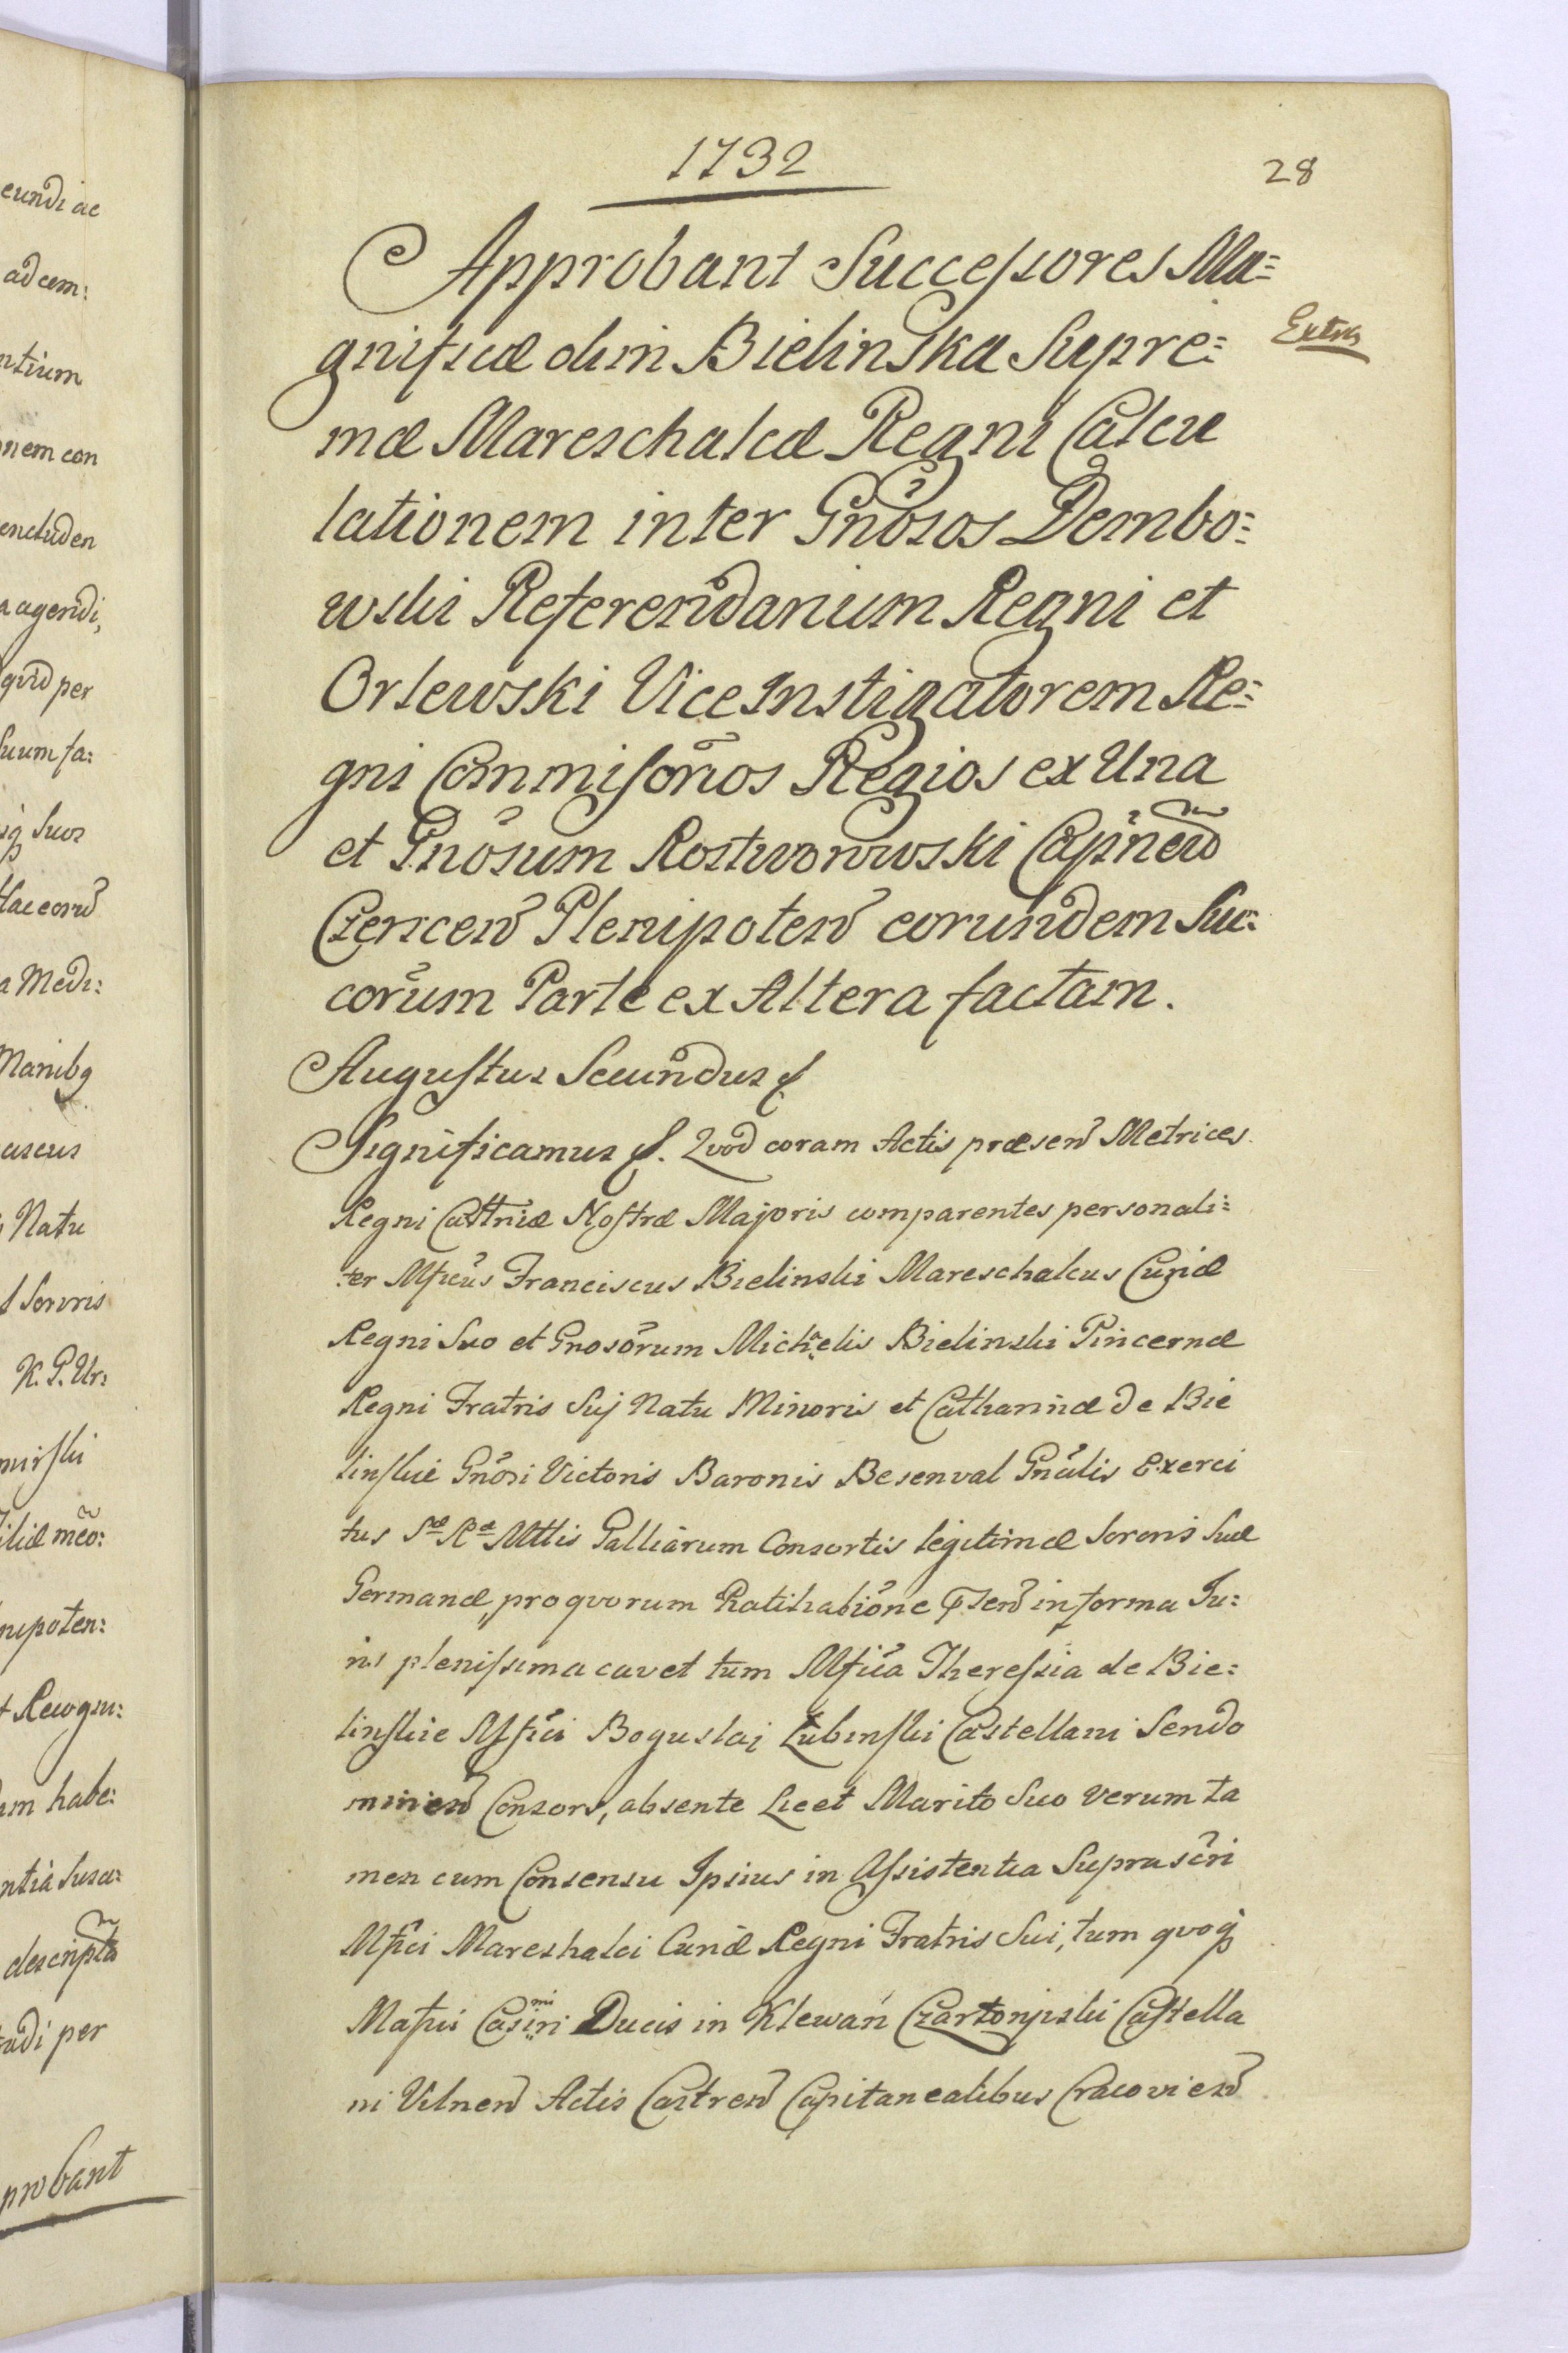 eundi ac
ad cem:
ntium
nem con
encluden
a agendi,
quid per
suum fa:
Medi:
Manibq
Natu
Sororis
K. P. Ur:
iliæ meo:
nipoten:
t Recogni:
um habe:
descripta
per
probant
1732
28
Approbant Successores Ma=
gnificæ olim Bielinska Supre=
Extra
mæ Mareschalcæ Regni Calcu
lationem inter Gnosos Dembo=
wski Referendarium Regni et
Orlewski Vice Instigatorem Re=
gni Commissorios Regios ex Una
et Gnosum Rostworowski Capneum
Czericen Plenipoten eorundem Suc=
corum Parte ex Altera factam.
Augustus Secundus &.
Significamus &. Quod coram Actis præsen Metrices
Regni Cattriæ Nostræ Majoris comparentes personali=
ter Mficus Franciscus Bielinski Mareschalcus Curiæ
Regni Suo et Gnosorum Michaelis Bielinski Pincernæ
Regni Fratris Suj Natu Minoris et Catharinæ de Bie
linskie Gnosi Victoris Baronis Besenval Gnalis Exerci
tus Sæ Ræ Mttis Galliarum Consortis legitimæ Sororis Suæ
Germanæ, pro quorum Ratihabione psen in forma Ju=
ris plenissima cavet tum Mfica Theressia de Bie=
linskie Mfici Boguslaj Lubinski Castellani Sendo
mirien Consors, absente licet Marito Suo verum ta
men cum Consensu Ipsius in Assistentia Suprascri
Mfici Mareshalci Curiæ Regni Fratris Sui, tum quoq
Mafici Casimiri Ducis in Klewań Czartoryiski Castella
ni Vilnen Actis Castren Capitanealibus Cracovien